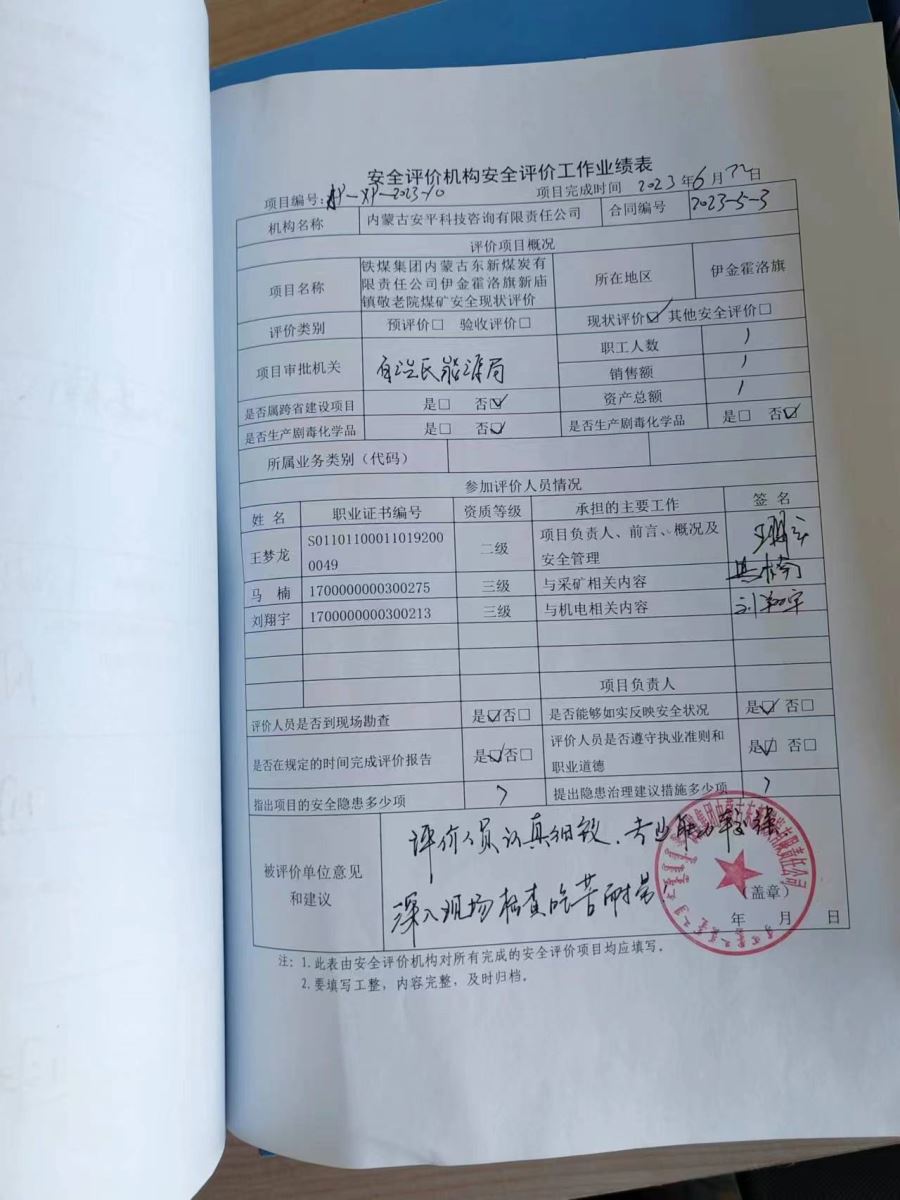 安全评价机构安全评价工作业绩表
项目编号:AP-XP-2023-10 项目完成时间 2023年6月22日
机构名称 内蒙古安平科技咨询有限责任公司 合同编号 2023-5-3
评价项目概况
项目名称 铁煤集团内蒙古东新煤炭有限责任公司伊金霍洛旗新庙镇敬老院煤矿安全现状评价 所在地区 伊金霍洛旗
评价类别 预评价□ 验收评价□ 现状评价☑ 其他安全评价□
项目审批机关 自治区能源局 职工人数 /
销售额 /
资产总额 /
是否属跨省建设项目 是□ 否☑
是否生产剧毒化学品 是□ 否☑ 是否生产剧毒化学品 是□ 否☑
所属业务类别（代码）
参加评价人员情况
姓 名 职业证书编号 资质等级 承担的主要工作 签 名
王梦龙 S011011000110192000049 二级 项目负责人、前言、概况及安全管理
马 楠 1700000000300275 三级 与采矿相关内容 马楠
刘翔宇 1700000000300213 三级 与机电相关内容 刘翔宇
项目负责人
评价人员是否到现场勘查 是☑否□ 是否能够如实反映安全状况 是☑ 否□
是否在规定的时间完成评价报告 是☑否□ 评价人员是否遵守执业准则和职业道德 是☑ 否□
指出项目的安全隐患多少项 7 提出隐患治理建议措施多少项 7
被评价单位意见和建议
评价人员认真细致、专业能力较强、
深入现场检查吃苦耐劳
（盖章）
年 月 日
注：1.此表由安全评价机构对所有完成的安全评价项目均应填写。
2.要填写工整，内容完整，及时归档。